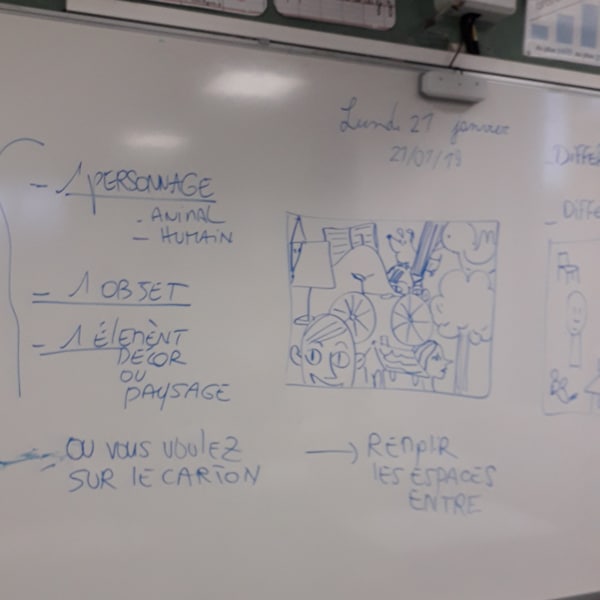 Lundi 21 janvier
21/01/19
- 1 PERSONNAGE
- ANIMAL
- HUMAIN
- 1 OBJET
- 1 ÉLEMENT
DÉCOR
OU
PAYSAGE
OU VOUS VOULEZ
SUR LE CARTON
→ REMPLIR
LES ESPACES
ENTRE
- DIFFE
- DIFFE